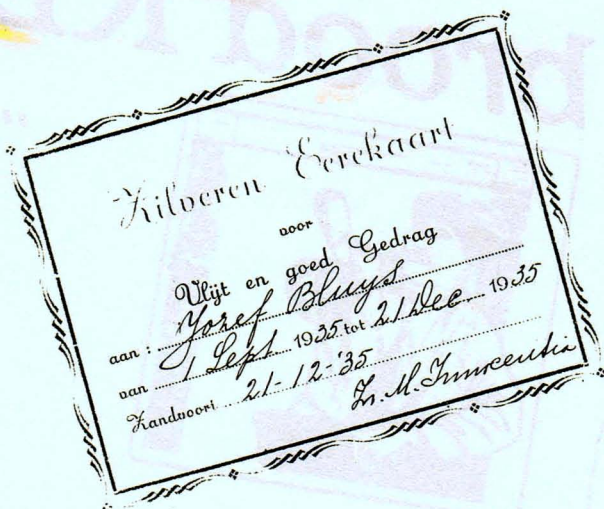 Zilveren Eerekaart
voor
Vlijt en goed Gedrag
aan : Jozef Bluys
van 1 Sept 1935 tot 21 Dec. 1935
Zandvoort 21-12-'35
Zr. M. Innocentia